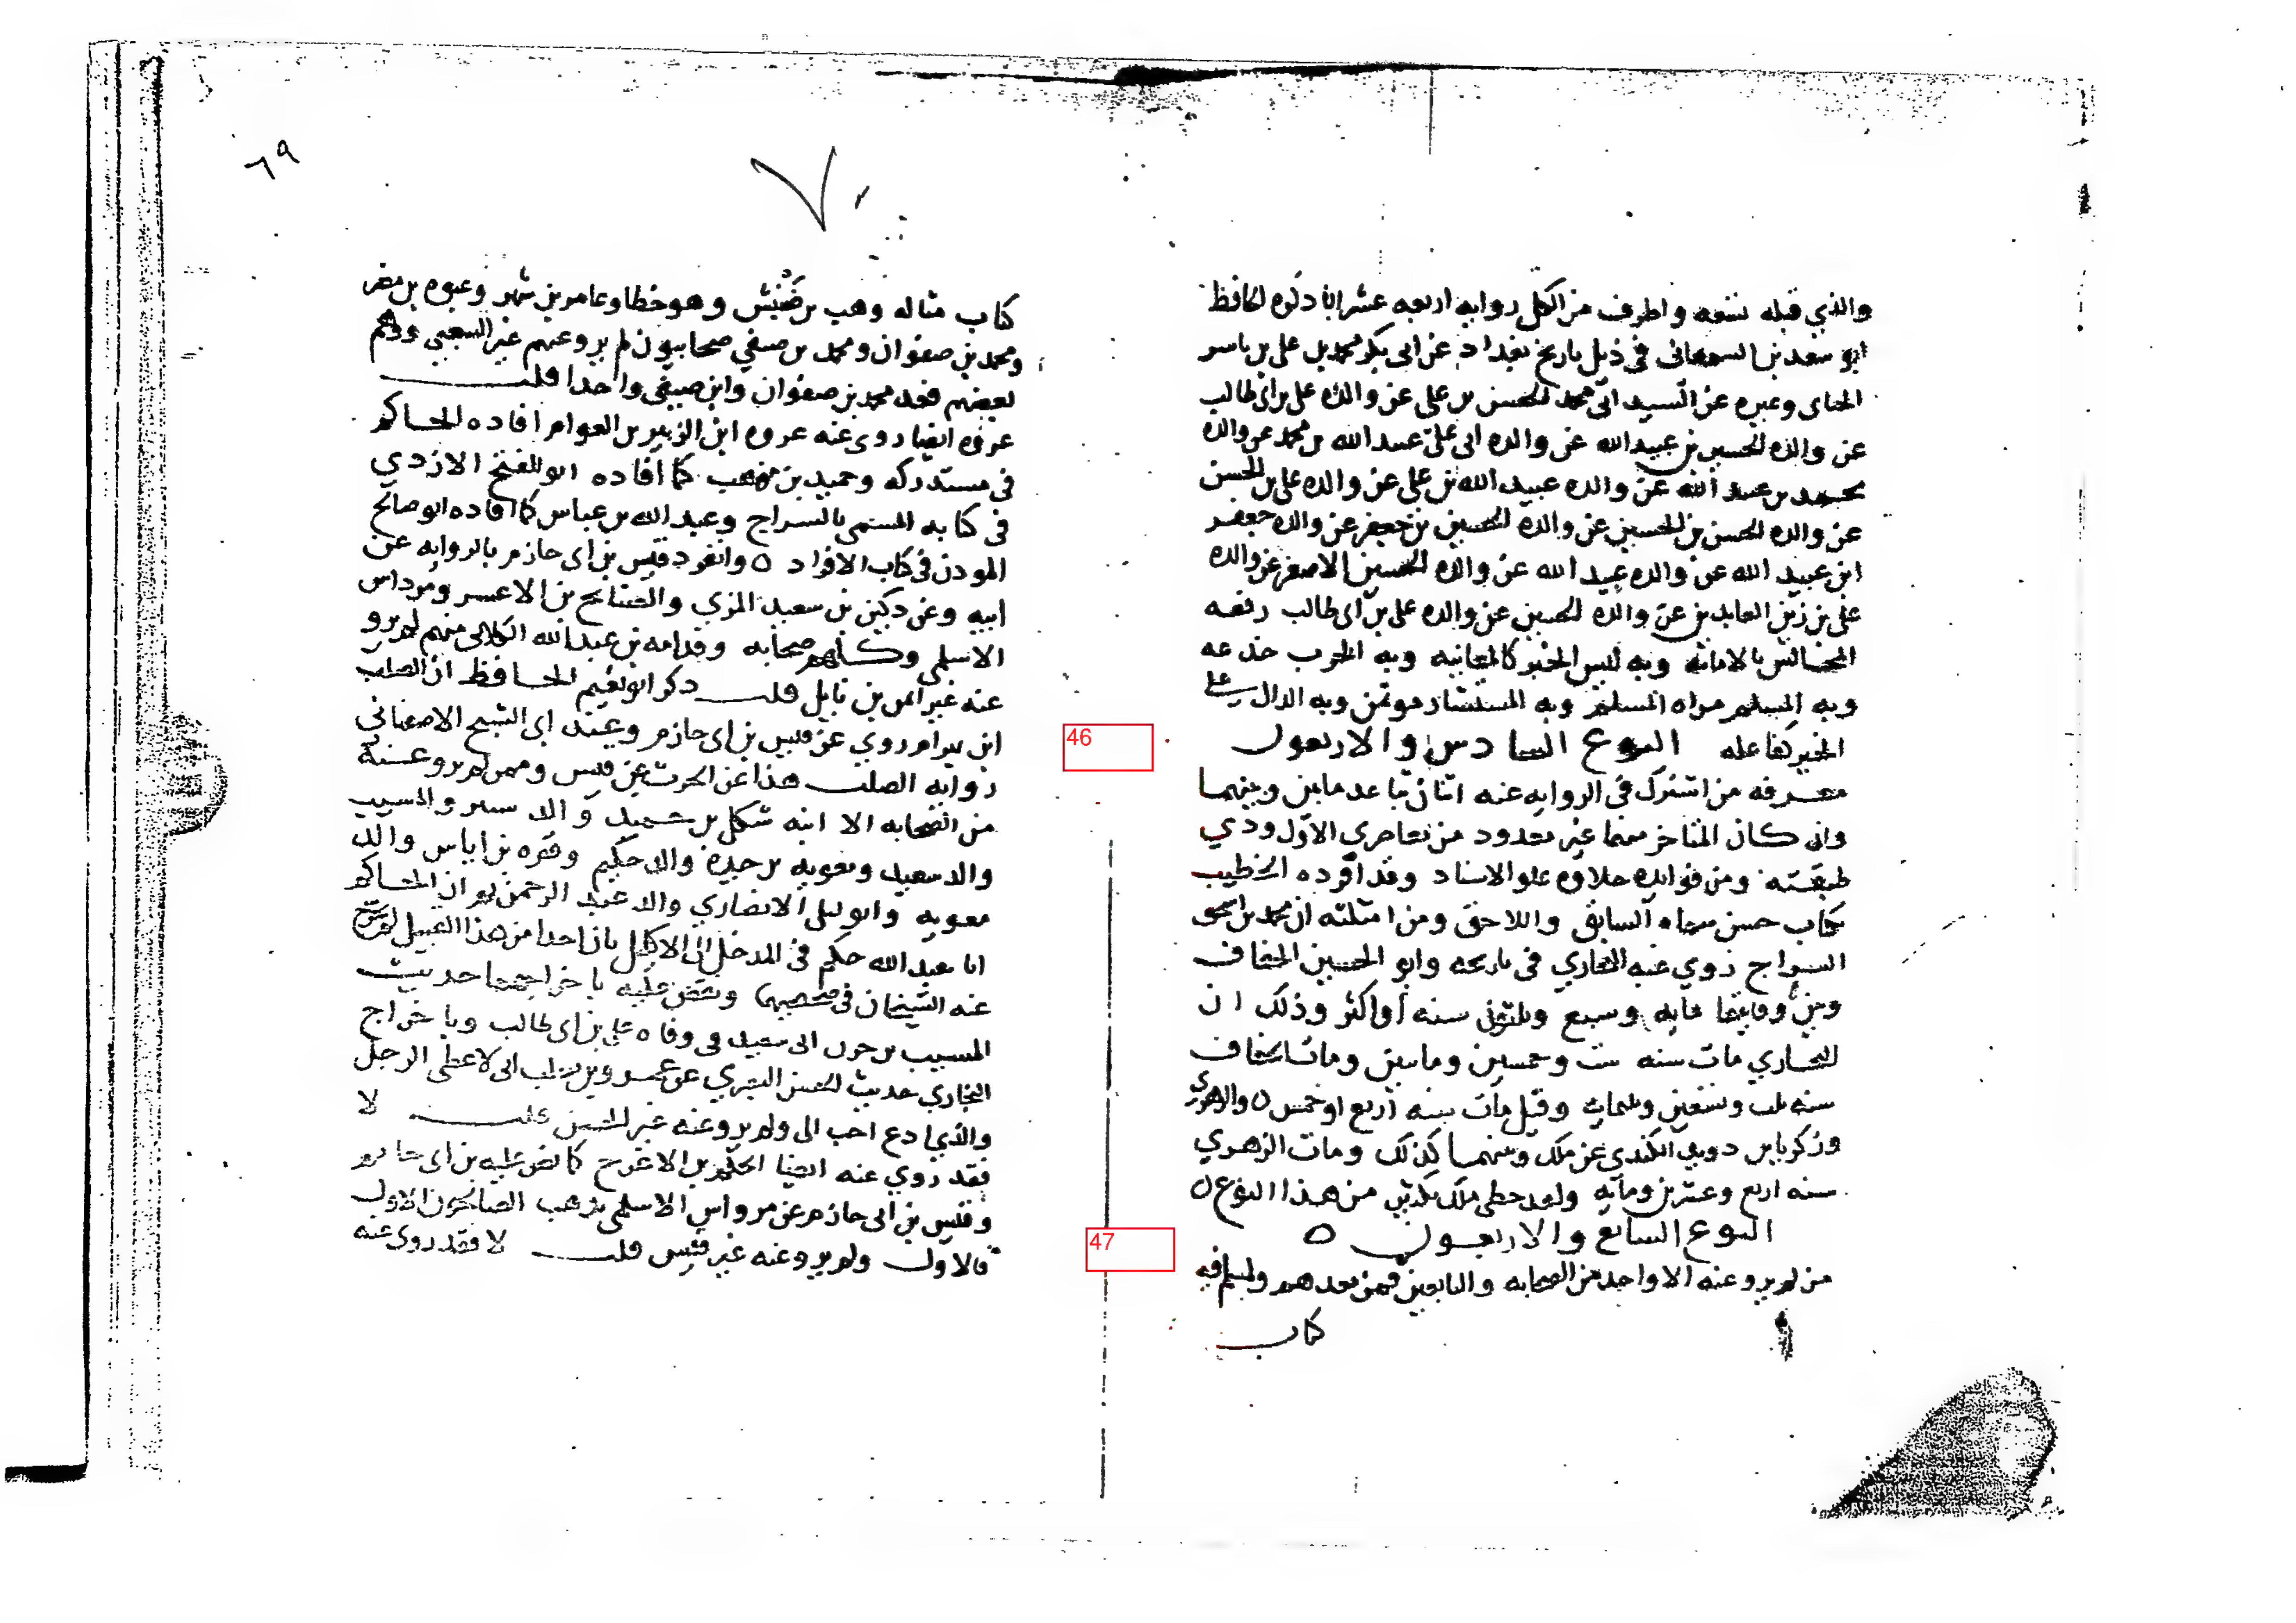 والذي قبله تسعه واطرف من الكل روايه اربعه عشر ابا ذكره الحافظ
ابو سعد بن السمعاني في ذيل تاريخ بغداد عن ابي بكر محمد بن علي بن ياسر
وغيره عن السيد ابي محمد الحسن بن علي عن والده علي بن ابي طالب
عن والده الحسين بن عبيد الله عن والده ابي علي عبيد الله بن محمد عن والده
محمد بن عبيد الله عن والده عبيد الله بن علي عن والده علي بن الحسن
عن والده الحسن بن الحسين عن والده الحسين بن جعفر عن والده جعفر
ابن عبيد الله عن والده عبيد الله عن والده الحسين الاصغر عن والده
علي بن زين العابدين عن والده الحسين عن والده علي بن ابي طالب رفعه
المجالس بالامانه وبه ليس الخبر كالمعاينه وبه الحرب خدعه
وبه المسلم مراه المسلم وبه المستشار موتمن وبه الدال على
الخير كفاعله النوع السادس والاربعون
46
معرفه من اشترك في الروايه عنه اثنان تباعد مابين وبينهما
وان كان المتاخر منهما غير معدود من معاصري الاول وذي
طبقته ومن فوايده حلاوه علو الاسناد وقد افرده الخطيب
كتاب حسن سماه السابق واللاحق ومن امثلته ان محمد بن اسحق
السراج روي عنه البخاري في تاريخه وابو الحسين الخفاف
وبين وفاتيهما مايه وسبع وثلثون سنه او اكثر وذلك ان
البخاري مات سنه ست وخمسين ومايتين ومات الخفاف
سنه ثلث وتسعين وثلثمايه وقيل مات سنه اربع او خمس ٥ والزهري
وزكريا بن دويد الكندي عن ملك وبينهما كذلك ومات الزهري
سنه اربع وعشرين ومايه ولقد حظي ملك بكثير من هذا النوع ٥
النوع السابع والاربعون ٥
47
من لم يرو عنه الا واحد من الصحابه والتابعين فمن بعدهم ولمسلم فيه
كتاب
٦٩
٧٠
كتاب مثاله وهب بن خنبش وهو خطا وعامر بن شهر وعروه بن مضر
ومحمد بن صفوان ومحمد بن صيفي صحابيون لم يرو عنهم غير الشعبي ووهم
بعضهم فعد محمد بن صفوان وابن صيفي واحدا قلت
عروه ايضا روي عنه عروه ابن الزبير بن العوام افاده الحاكم
في مستدركه وحميد بن منهب كما افاده ابو الفتح الازدي
في كتابه المسمى بالسراج وعبد الله بن عباس كما افاده ابو صالح
الموذن في كتاب الافراد ٥ وانفرد قيس بن ابي حازم بالروايه عن
ابيه وعن دكين بن سعيد المزني والصنابح بن الاعسر ومرداس
الاسلمي وكلهم صحابه وقدامه بن عبد الله الكلابي منهم لم يرو
عنه غير ايمن بن نابل قلت ذكر ابو نعيم الحافظ ان الصلت
ابن بهرام روي عن قيس بن ابي حازم وعند ابي الشيخ الاصفهاني
روايه الصلت هذا عن الحرث عن قيس وممن لم يرو عنه
من الصحابه الا ابنه شكل بن حميد والد شتير والمسيب
والد سعيد ومعويه بن حيده والد حكيم وقره بن اياس والد
معويه وابو ليلى الانصاري والد عبد الرحمن ثم ان الحاكم
ابا عبد الله حكم في المدخل الى الاكليل بان احدا من هذا القبيل لم يخرج
عنه الشيخان في صحيحيهما ونقض عليه باخراجهما حديث
المسيب بن حزن ابي سعيد في وفاه ابي طالب وباخراج
البخاري حديث الحسن البصري عن عمرو بن تغلب اني لاعطي الرجل
والذي ادع احب الي ولم يرو عنه غير الحسن قلت لا
فقد روي عنه ايضا الحكم بن الاعرج كما نص عليه بن ابي حاتم
وقيس بن ابي حازم عن مرداس الاسلمي يذهب الصالحون الاول
فالاول ولم يرو عنه غير قيس قلت لا فقد روى عنه